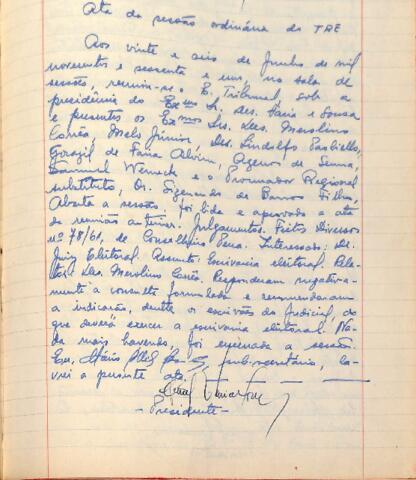 Ata da sessão ordinária do TRE
Aos vinte e seis de Junho de mil
novecentos e sessenta e um, na sala de
sessões, reuniu-se o E. Tribunal, sob a
presidência do Exmo Sr. Des. Faria e Sousa
e presentes os Exmos Srs. Des. Marcolino
Corrêa, Melo Júnior, Drs. Lindolfo Paoliello,
Gorazil de Faria Alvim, Ageu de Senna,
Werneck e o Procurador Regional
substituto, Dr. Egenando de Barros Filho,
Aberta a sessão. foi lida e aprovada a ata
da reunião anterior. Julgamentos. Feitos Diversos
nº 78/61, de Conselheiro Pena. Interessado: Dr.
Juiz Eleitoral. Assunto: Escrivania eleitoral. Rela-
tor: Des. Marcolino Corrêa. Responderam negativa-
mente à consulta formulada e recomendaram
a indicação, dentre os escrivães do Judicial, do
que deverá exercer a escrivania eleitoral. Na-
da mais havendo, foi encerrada a sessão.
Eu, Mário subsecretário, la-
vrei a presente ata.
- Presidente -